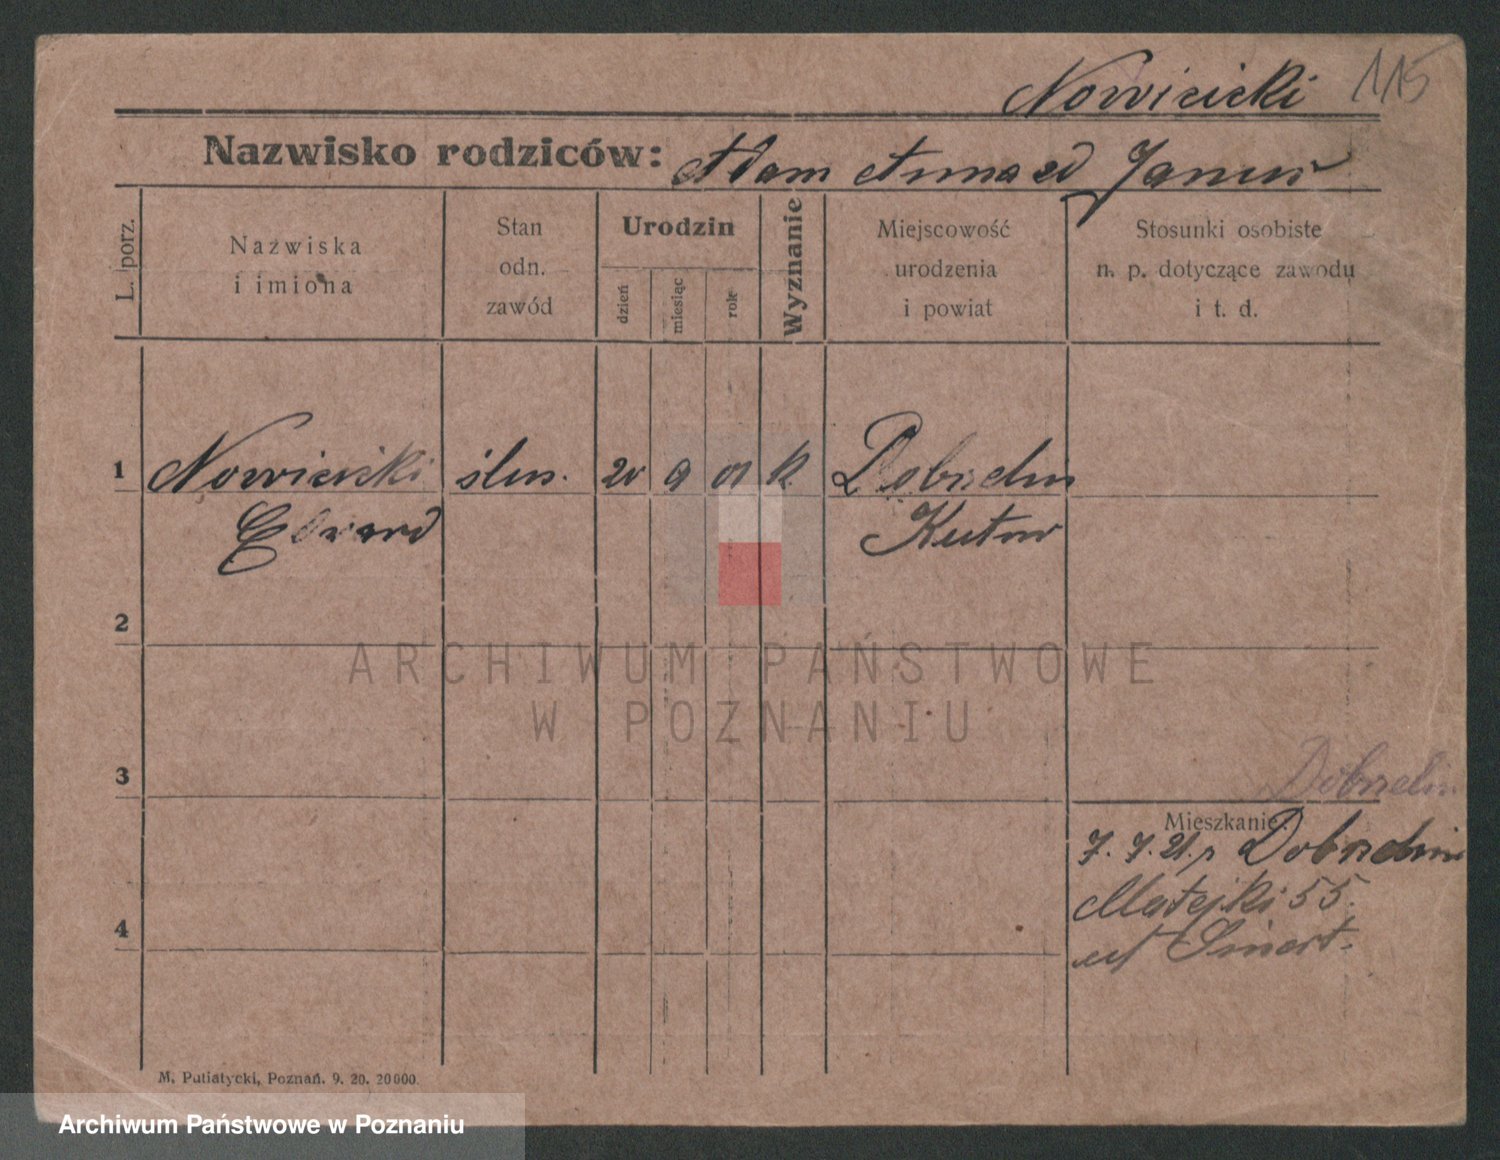 Nowicicki 115
Nazwisko rodziców: Adam Anna zd
L. porz.
Nazwiska
i imiona
Stan
odn.
zawód
Urodzin
dzień
miesiąc
rok
Wyznanie
Miejscowość
urodzenia
i powiat
Stosunki osobiste
n. p. dotyczące zawodu
i t. d.
1 Nowicicki ślus. 20 9 01 k. Dobrzelin
Edward Kutno
2
ARCHIWUM PAŃSTWOWE
W POZNANIU
3
Dobrzelin
Mieszkanie:
7. 7. 21. z Dobrzelin
Matejki 55.
4
M. Putiatycki, Poznań. 9. 20. 20000.
Archiwum Państwowe w Poznaniu